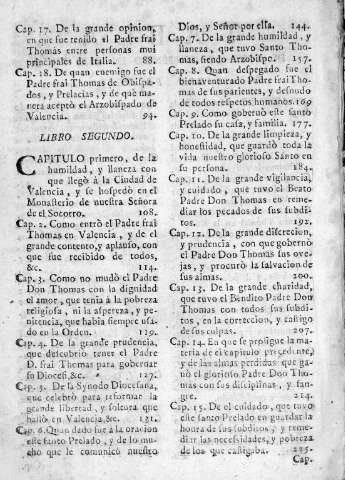 Cap. 17. De la grande opinion,
en que fue tenido el Padre frai
Thomas entre personas mui
principales de Italia. 88.
Cap. 18. De quan enemigo fue el
Padre frai Thomas de Obispa-
dos, y Prelacias, y de què ma-
nera aceptò el Arzobispado de
Valencia. 94.
LIBRO SEGUNDO.
CAPITULO primero, de la
humildad, y llaneza con
que llegò à la Ciudad de
Valencia, y se hospedò en el
Monasterio de nuestra Señora
de el Socorro. 108.
Cap. 2. Como entrò el Padre frai
Thomas en Valencia, y de el
grande contento, y aplauso, con
que fue recibido de todos,
&c. 114.
Cap. 3. Como no mudò el Padre
Don Thomas con la dignidad
el amor, que tenia à la pobreza
religiosa, ni la aspereza, y pe-
nitencia, que havia siempre usa-
do en la Orden. 119.
Cap. 4. De la grande prudencia,
que descubriò tener el Padre
D. frai Thomas para gobernar
su Diocesi, &c. 127.
Cap. 5. De la Synodo Diocesana,
que celebrò para reformar la
grande libertad, y soltura que
hallò en Valencia, &c. 131.
Cap. 6. Quan dado fue à la oracion
este santo Prelado, y de lo mu-
cho que le comunicò nuestro
Dios, y Señor por ella. 144.
Cap. 7. De la grande humildad, y
llaneza, que tuvo Santo Tho-
mas, siendo Arzobispo. 157.
Cap. 8. Quan despegado fue el
bienaventurado Padre frai Tho-
mas de sus parientes, y desnudo
de todos respetos humanos. 169
Cap. 9. Como goberuò este santo
Prelado su casa, y familia. 177.
Cap. 10. De la grande limpieza, y
honestidad, que guardò toda la
vida nuestro glorioso Santo en
su persona. 184.
Cap. 11. De la grande vigilancia,
y cuidado, que tuvo el Beato
Padre Don Thomas en reme-
diar los pecados de sus subdi-
tos. 192.
Cap. 12. De la grande discrecion,
y prudencia, con que gobernò
el Padre Don Thomas sus ove-
jas, y procurò la salvacion de
sus almas. 200.
Cap. 13. De la grande charidad,
que tuvo el Bendito Padre Don
Thomas con todos sus subdi-
tos, en la correccion, y castigo
de sus culpas. 207.
Cap. 14. En que se prosigue la ma-
teria de el capitulo precedente,
y de las almas perdidas que ga-
nò el glorioso Padre Don Tho-
mas con sus disciplinas, y san-
gre. 214.
Cap. 15. De el cuidado, que tuvo
este santo Prelado en guardar la
honra de sus subditos, y reme-
diar las necesidades, y pobreza
de los que castigaba. 225.
Cap.